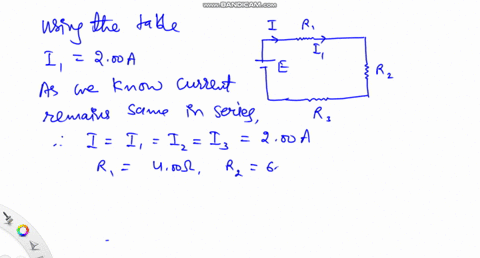 www.BANDICAM.com
using the table
I₁ = 2.00A
As we know current
remains same in series,
∴ I = I₁ = I₂ = I₃ = 2.00A
R₁ = 4.00Ω, R₂ = 6
I
R₁
I₁
E
R₂
R₃